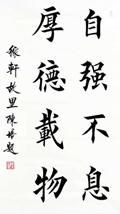 自强不息
厚德載物
稼軒故里陳培題